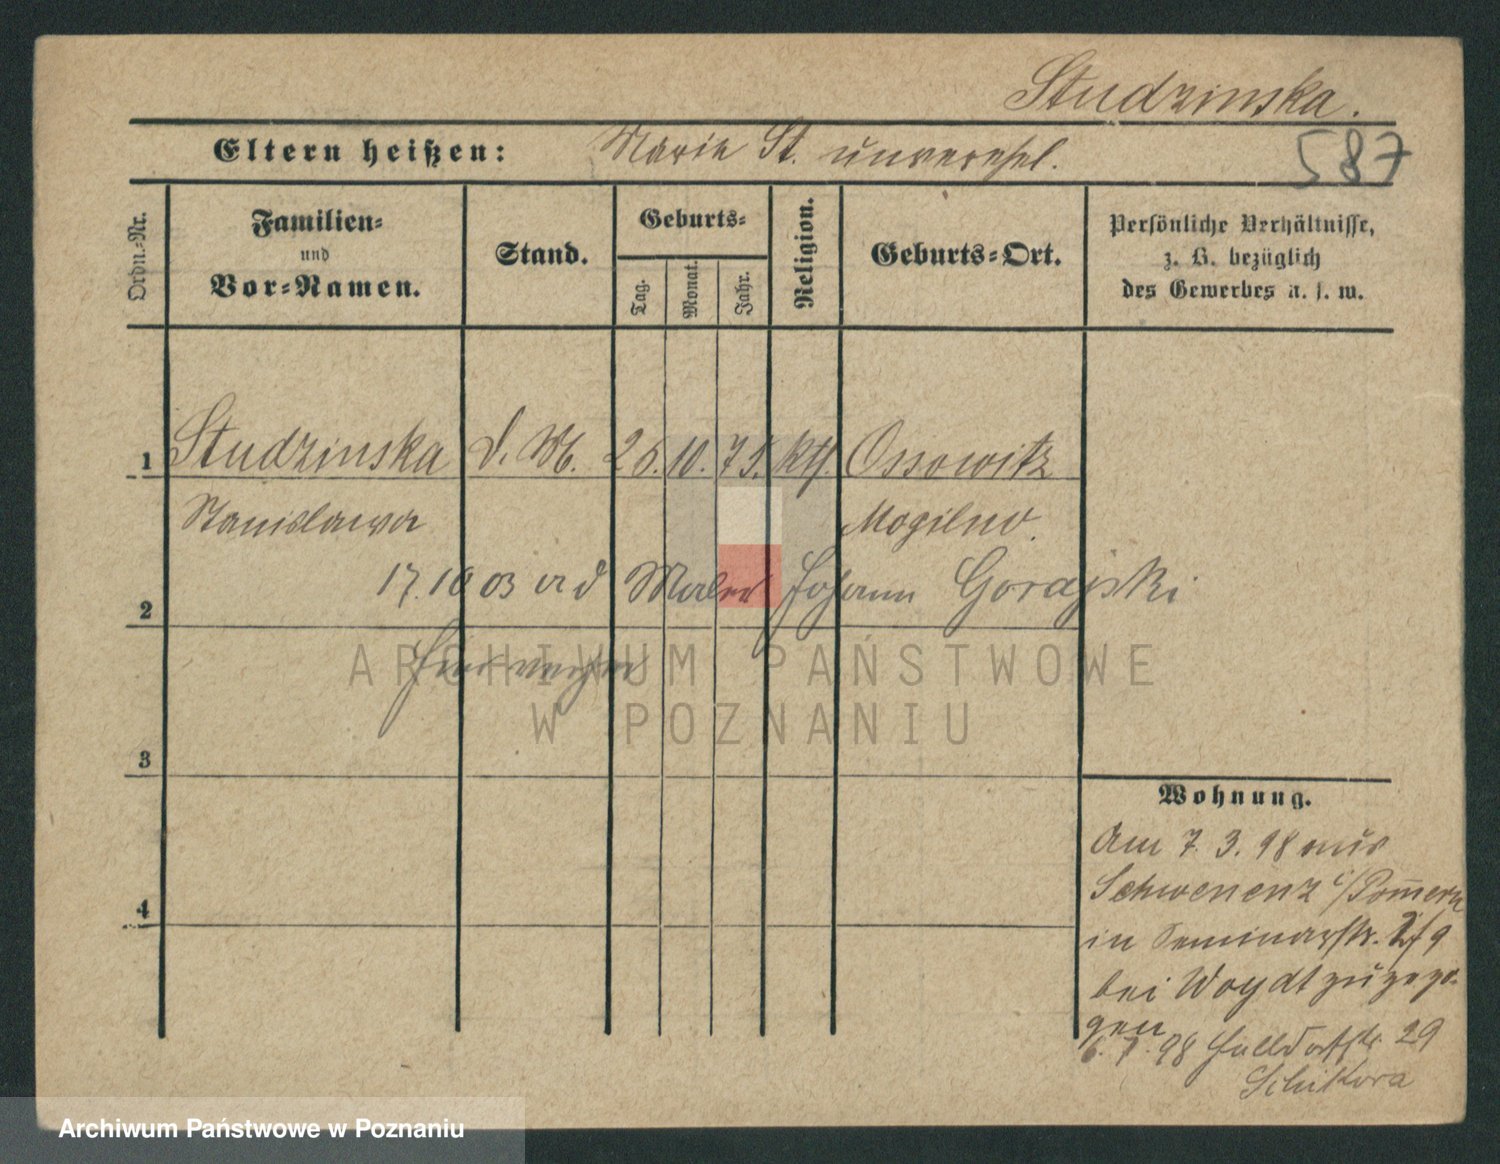 Studzinska.
Eltern heißen: Marie St. unverehel.
587
Ordn.-Nr.
Familien-
und
Vor-Namen.
Stand.
Geburts-
Tag.
Monat.
Jahr.
Religion.
Geburts-Ort.
Persönliche Verhältnisse,
z. B. bezüglich
des Gewerbes u. s. w.
1 Studzinska 26. 10. 75. kth. Ossowitz
Stanislawa Mogilno.
17.10 03 Maler Johann Gorajski
2
hier
ARCHIWUM PAŃSTWOWE
W POZNANIU
3
Wohnung.
Am 7. 3. 98 aus
Schwenenz i/Pommern
4
in Seminarstr. 9
bei Woydt zugezo-
gen
6. 7. 98 Halldorfstr. 29
Schikora
Archiwum Państwowe w Poznaniu